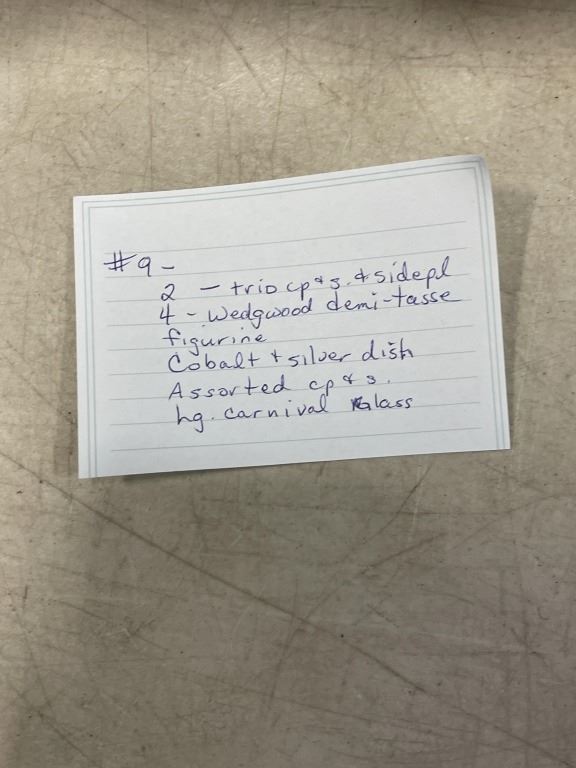 #9 -
2 - trio cp & s. & sidepl
4 - Wedgwood demi-tasse
figurine
Cobalt + silver dish
Assorted cp & s.
Lg. carnival Glass